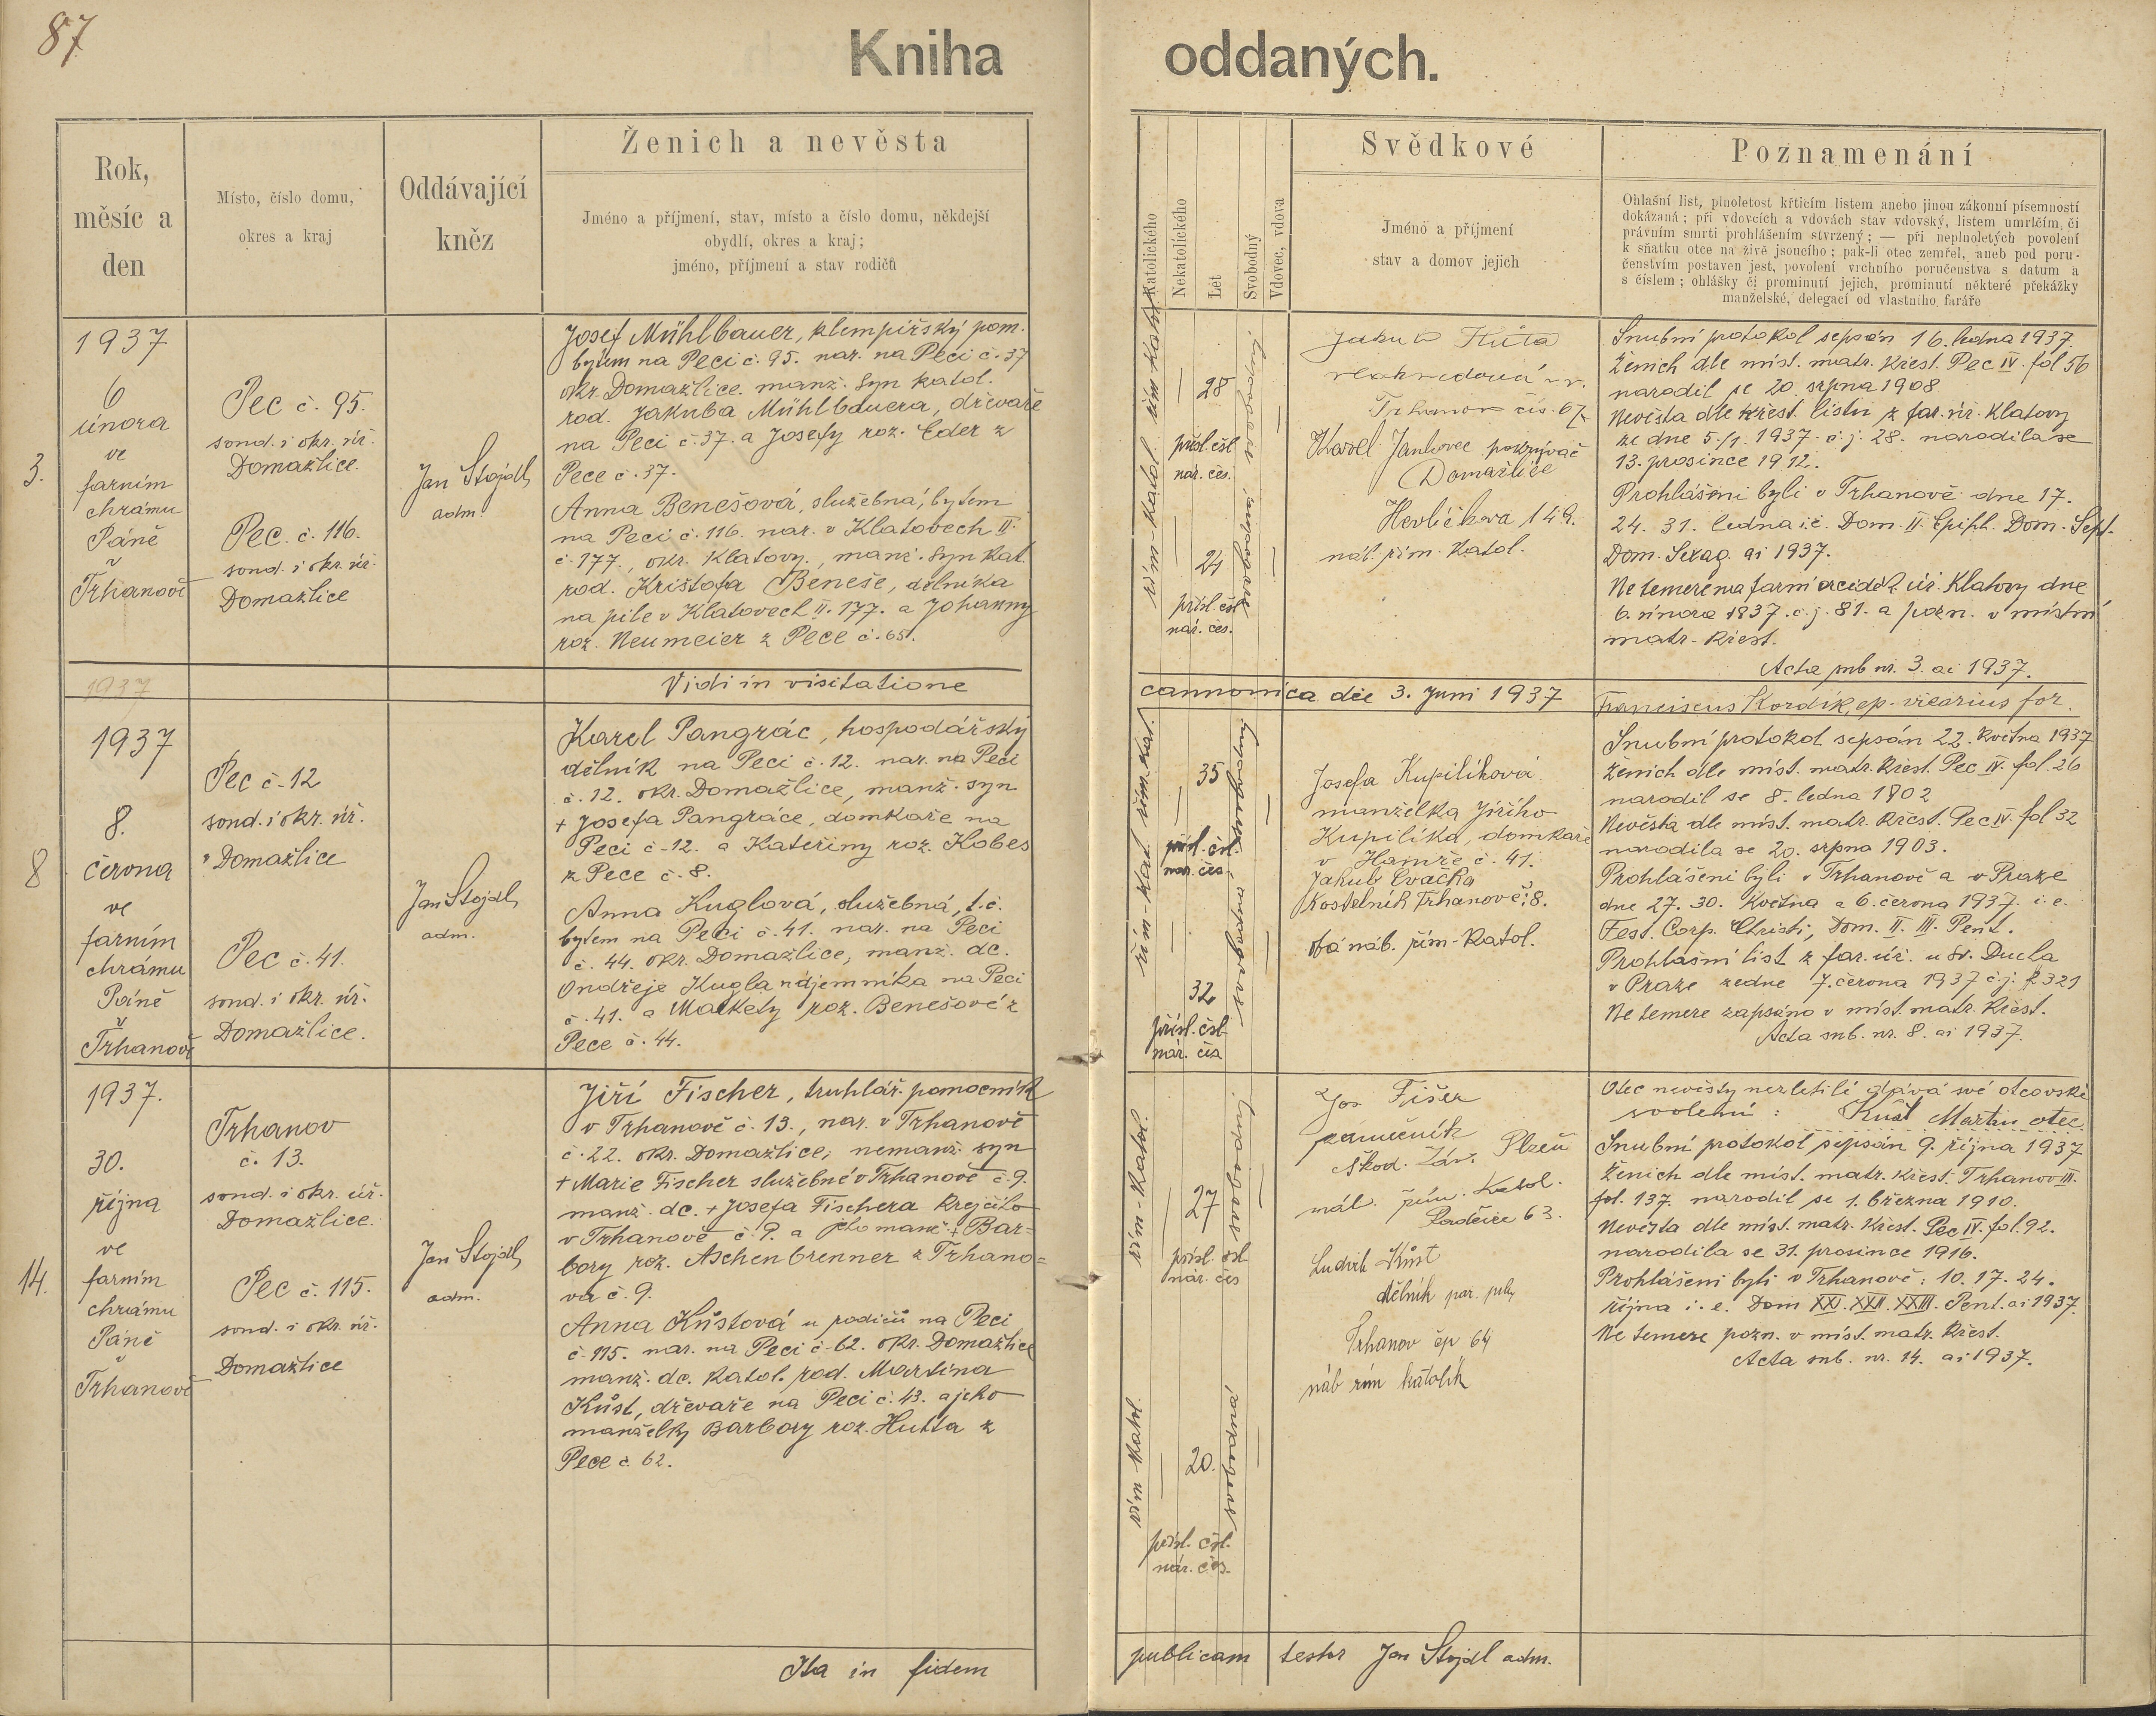 87
Kniha oddaných.
Rok,
měsíc a
den
Místo, číslo domu,
okres a kraj
Oddávající
kněz
Ženich a nevěsta
Jméno a příjmení, stav, místo a číslo domu, někdejší
obydlí, okres a kraj;
jméno, příjmení a stav rodičů
Katolického
Nekatolického
Let
Svobodný
Vdovec, vdova
Svědkové
Jméno a příjmení
stav a domov jejich
Poznamenání
Ohlašní list, plnoletost křticím listem anebo jinou zákonní písemností
dokázaná; při vdovcích a vdovách stav vdovský, listem umrlčím, či
právním smrti prohlášením stvrzený; — při neplnoletých povolení
k sňatku otce na živě jsoucího; pak-li otec zemřel, aneb pod poru-
čenstvím postaven jest, povolení vrchního poručenstva s datum a
s číslem; ohlášky či prominutí jejich, prominutí některé překážky
manželské, delegací od vlastního faráře
3.
1937
6
února
ve
farním
chrámu
Páně
v
Trhanově
Pec č. 95.
soud. i okr. úř.
Domažlice.
Pec. č. 116.
soud. i okr. úř.
Domažlice
Jan Stojdl,
adm.
Josef Mühlbauer, klempířský pom.
bytem na Peci č. 95. nar. na Peci č. 37
okr. Domažlice. manž. syn katol.
rod. Jakuba Mühlbauera, dřevaře
na Peci č. 37. a Josefy roz. Eder z
Pece č. 37.
Anna Benešová, služebná, bytem
na Peci č. 116. nar. v Klatovech II.
č. 177., okr. Klatovy., manž. syn kat.
rod. Krištofa Beneše, dělníka
na pile v Klatovech II. 177. a Johanny
roz. Neumeier z Pece č. 65.
řím-katol. řím katol.
28
přísl. čsl.
nár. čes.
24
přísl. čsl.
nár. čes.
svobodná, svobodný.
Jakub
Trhanov čís. 67
Karel Janhovec pokrývač
Domažlice
Havlíčkova 149.
náb. řím. katol.
Snubní protokol sepsán 16. ledna 1937.
Ženich dle míst. matr. křest. Pec IV. fol 56
narodil se 20. srpna 1908
Nevěsta dle křest. listu z far. úř. Klatovy
ze dne 5./1. 1937. č. j. 28. narodila se
13. prosince 1912.
Prohlášeni byli v Trhanově dne 17.
24. 31. ledna i. e. Dom. II. Epiph. Dom. Sept.
Dom. Sexag. ai 1937.
Ne temere na farní arciděk. úř. Klatovy dne
6. února 1937. č. j. 81. a pozn. v místní
matr. křest.
Acta sub nr. 3. ai 1937.
1937
Vidi in visitatione cannonica die 3. Juni 1937 Franciscus Kordík, ep. vicarius for.
8
1937
8.
června
ve
farním
chrámu
Páně
v
Trhanově
Pec č. 12
soud. i okr. úř.
v Domažlice
Pec č. 41.
soud. i okr. úř.
Domažlice.
Jan Stojdl,
adm.
Karel Pangrác, hospodářský
dělník na Peci č. 12. nar. na Peci
č. 12. okr. Domažlice, manž. syn
+ Josefa Pangráce, domkaře na
Peci č. 12. a Kateřiny roz. Kobes
z Pece č. 8.
Anna Kuglová, služebná, t. č.
bytem na Peci č. 41. nar. na Peci
č. 44. okr. Domažlice, manž. dc.
Ondřeje Kugla nájemníka na Peci
č. 41. a Markety roz. Benešové z
Pece č. 44.
řím-kat. řím. kat.
35
přísl. čsl.
nár. čes.
32
přísl. čsl.
nár. čes
svobodná. svobodný.
Josefa Kupilíková
manželka Jiřího
Kupilíka, domkaře
v Hamře č. 41.
Jakub Cvačka
kostelník Trhanov č. 8.
oba náb. řím-katol.
Snubní protokol sepsán 22. května 1937
Ženich dle míst. matr. křest. Pec IV. fol. 26
narodil se 8. ledna 1902
Nevěsta dle míst. matr. křest. Pec IV. fol 32
narodila se 20. srpna 1903.
Prohlášeni byli v Trhanově a v Praze
dne 27. 30. května a 6. června 1937. i. e.
Fest. Corp. Christi, Dom. II. III. Pent.
Prohlášní list z far. úř. u sv. Ducha
v Praze ze dne 7. června 1937 č. j.
Ne temere zapsáno v míst. matr. křest.
Acta sub. nr. 8. ai 1937.
14.
1937.
30.
října
ve
farním
chrámu
Páně
v
Trhanově
Trhanov
č. 13.
soud. i okr. úř.
Domažlice.
Pec č. 115.
soud. i okr. úř.
Domažlice
Jan Stojdl,
adm.
Jiří Fischer, truhlář. pomocník
v Trhanově č. 13., nar. v Trhanově
č. 22. okr. Domažlice, nemanž. syn
+ Marie Fischer služebné v Trhanově č. 9.
manž. dc. + Josefa Fischera krejčího
v Trhanově č. 9. a jeho manž. + Bar-
bory roz. Aschenbrenner z Trhano-
va č. 9.
Anna Kůstová u rodičů na Peci
č. 115. nar. na Peci č. 62. okr. Domažlice
manž. dc. katol. rod. Martina
Kůst, dřevaře na Peci č. 43. a jeho
manželky Barbory roz. Hutta z
Pece č. 62.
řím-katol.
27
přísl. čsl.
nár. čes
svobodný.
řím katol.
20.
přísl. čsl.
nár. čes.
svobodná
Jos Fišer
zámečník
Škod. záv. Plzeň
náb. řím. katol.
63.
Ludvík Kůst
dělník par. pily
Trhanov čp 64
náb řím katolík
Otec nevěsty nezletilé dává své otcovské
svolení: Kůst Martin otec.
Snubní protokol sepsán 9. října 1937
Ženich dle míst. matr. křest. Trhanov III.
fol. 137. narodil se 1. března 1910.
Nevěsta dle míst. matr. křest. Pec IV. fol. 92.
narodila se 31. prosince 1916.
Prohlášeni byli v Trhanově: 10. 17. 24.
října i. e. Dom XXI. XXII. XXIII. Pent. ai 1937.
Ne temere pozn. v míst. matr. křest.
Acta sub. nr. 14. ai 1937.
Ita in fidem publicam testor Jan Stojdl adm.